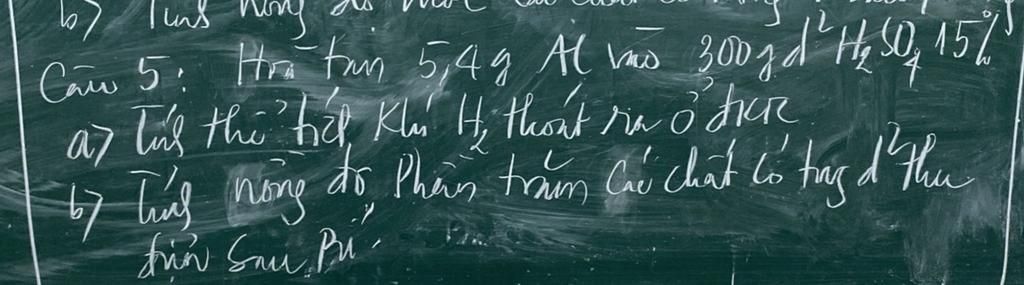 b> Tính nồng độ mol các chất
Câu 5: Hòa tan 5,4g Al vào 300g d² H₂SO₄ 15%
a> Tính thể tích khí H₂ thoát ra ở đktc
b> Tính nồng độ phần trăm các chất có trong d² thu
được sau Pứ.